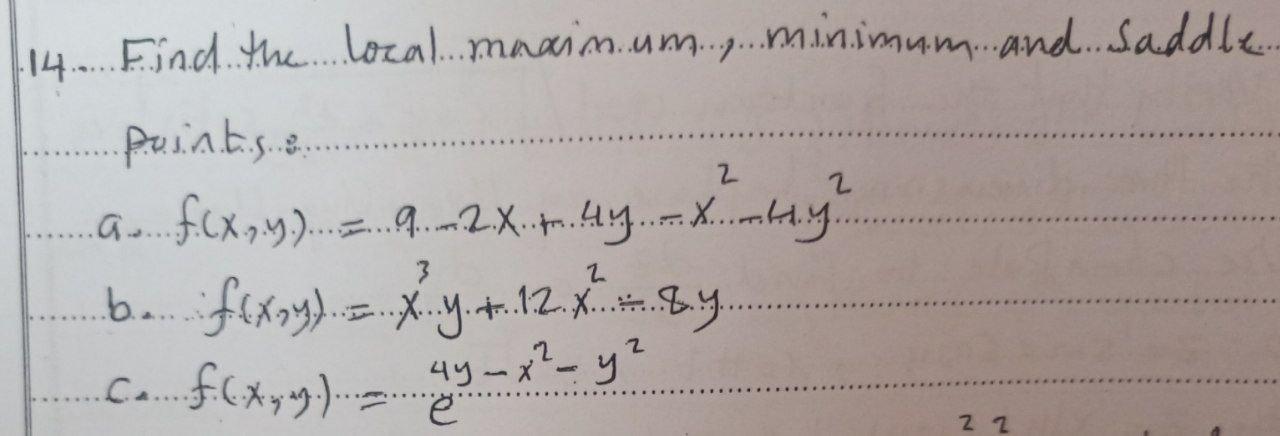 14. Find the local maximum, minimum and saddle
points:
a. f(x,y) = 9 - 2x + 4y - x² - 4y²
b. f(x,y) = x³y + 12x² - 8y
c. f(x,y) = e^{4y - x² - y²}
2 2